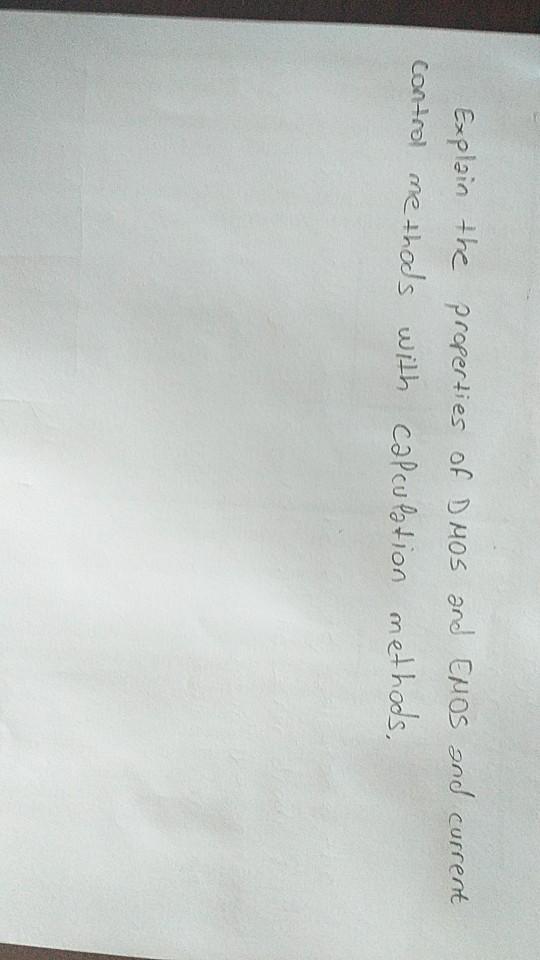 Explain the properties of DMOS and EMOS and current
control methods with calculation methods.